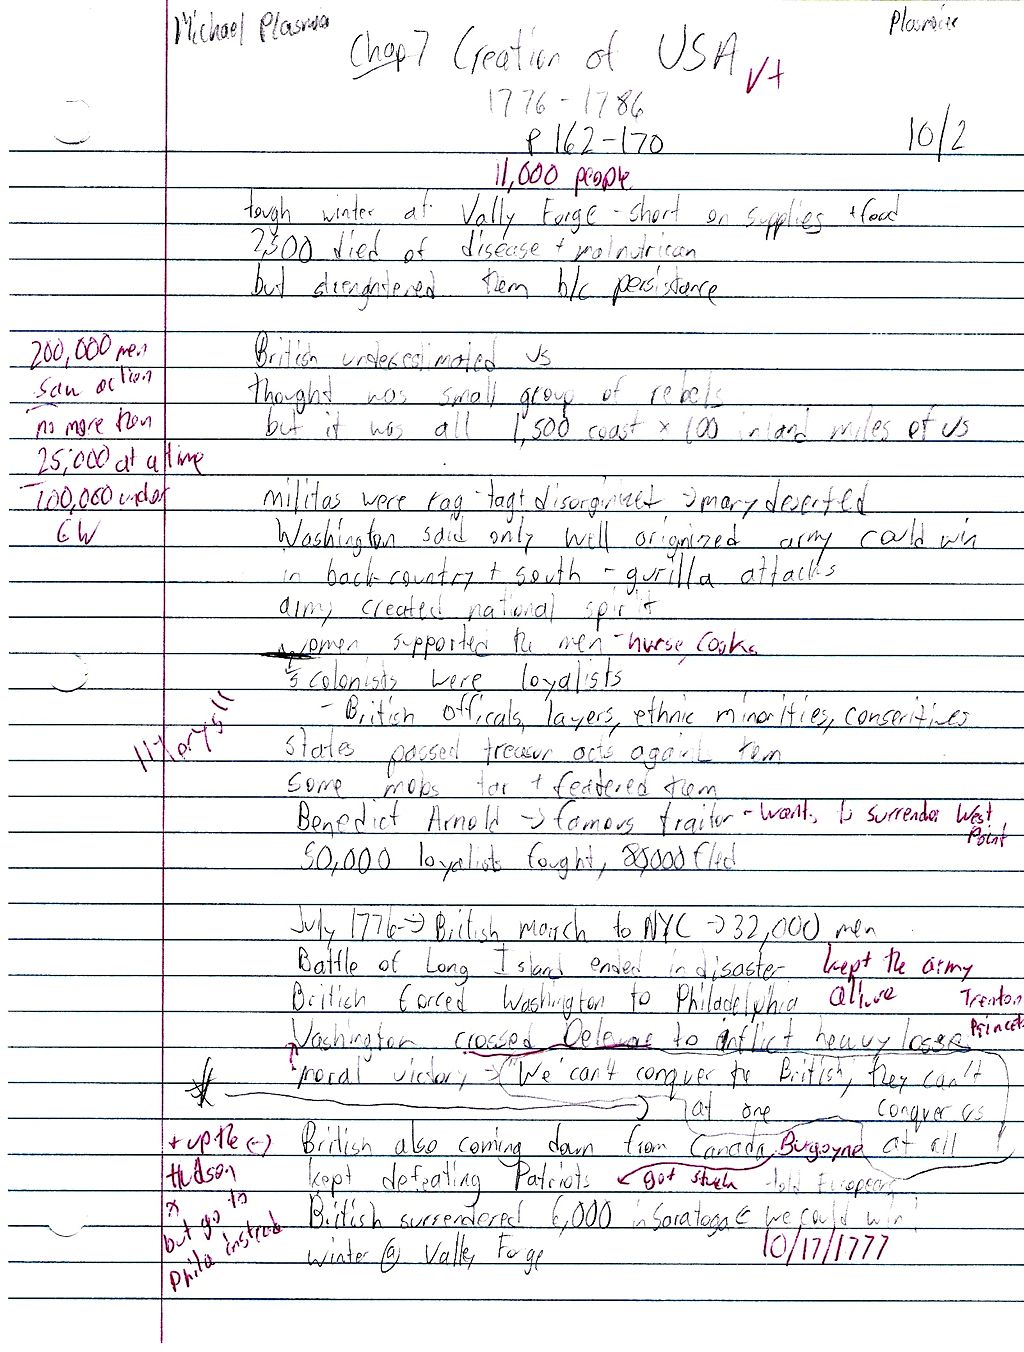 Michael Plasmia
Plasmia
Chap 7 Creation of USA
√+
1776-1786
P 162-170
10/2
11,000 people
tough winter at Vally Forge - short on supplies + food
2,500 died of disease + malnutrican
but strenghtered them b/c persistance
British underestimated us
thought was small group of rebels
but it was all 1,500 coast x 100 inland miles of us
200,000 men
saw action
no more than
25,000 at a time
100,000 under
GW
militas were rag-tag + disorginized → many deserted
Washington said only well orignized army could win
in back-country + south - gurilla attacks
army created national spirit
women supported the men - nurse, cooks
colonists were loyalists
- British officals, layers, ethnic minorities, conseritives
states passed treasur acts against tem
some mobs tar + featered tem
Benedict Arnold → famous traitor - wants to surrender West
Point
50,000 loyalists fought, 80,000 fled
July 1776 → British march to NYC → 32,000 men
Battle of Long Island ended in disaster kept the army
British forced Washington to Philadelphia allive Trenton
Princet
Washington crossed Delewar to inflict heavy loses
moral victory → "We can't conquer the British, they can't
at one conquer us
+ up the British also coming down from Canada Burgoyne at all
Hudson kept defeating Patriots ← got stuck told Europeans
but go to British surrendered 6,000 in Saratoga we could win
Phila instead winter @ Valley Forge 10/17/1777